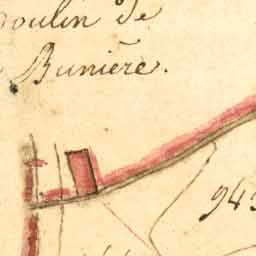 oulin de
Bunière.
94